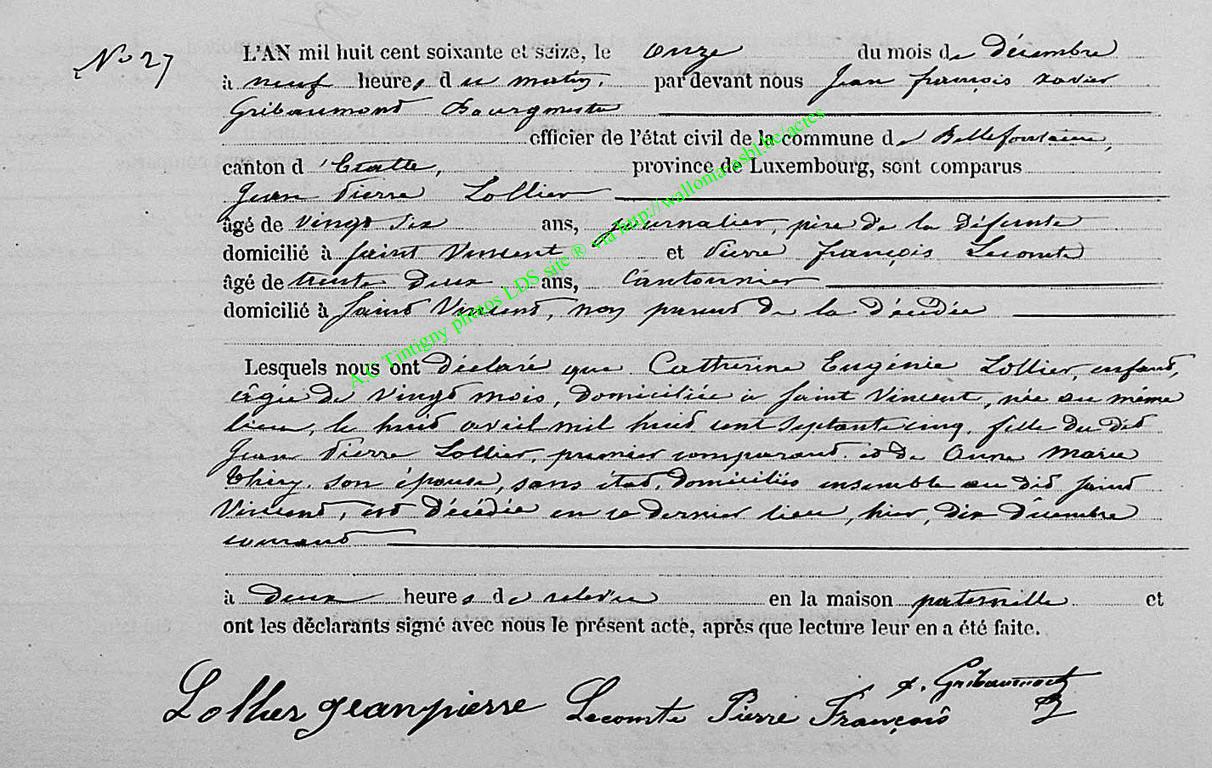 No 27
L'AN mil huit cent soixante et seize, le Onze du mois de décembre
à neuf heures du matin, par devant nous Jean françois xavier
Gribaumont Bourgmestre
officier de l'état civil de la commune de Bellefontaine,
canton d'Etalle, province de Luxembourg, sont comparus
Jean Pierre Lollier
âgé de vingt six ans, journalier, père de la défunte
domicilié à Saint Vincent et Pierre françois Lecomte
âgé de trente deux ans, Cantonnier
domicilié à Saint Vincent, non parent de la décédée
Lesquels nous ont déclaré que Catherine Eugénie Lollier, enfant,
âgée de vingt mois, domiciliée à Saint Vincent, née au même
lieu, le huit avril mil huit cent septante cinq, fille du dit
Jean Pierre Lollier, premier comparant, et de Anne Marie
Thiry, son épouse, sans état, domiciliés ensemble au dit Saint
Vincent, est décédée en ce dernier lieu, hier, dix décembre
courant
à deux heures de relevée en la maison paternelle et
ont les déclarants signé avec nous le présent acte, après que lecture leur en a été faite.
Lollier jean pierre Lecomte Pierre François x. Gribaumont
A.G Tintigny photos LDS site ® via http://wallonia.asbl.be/actes